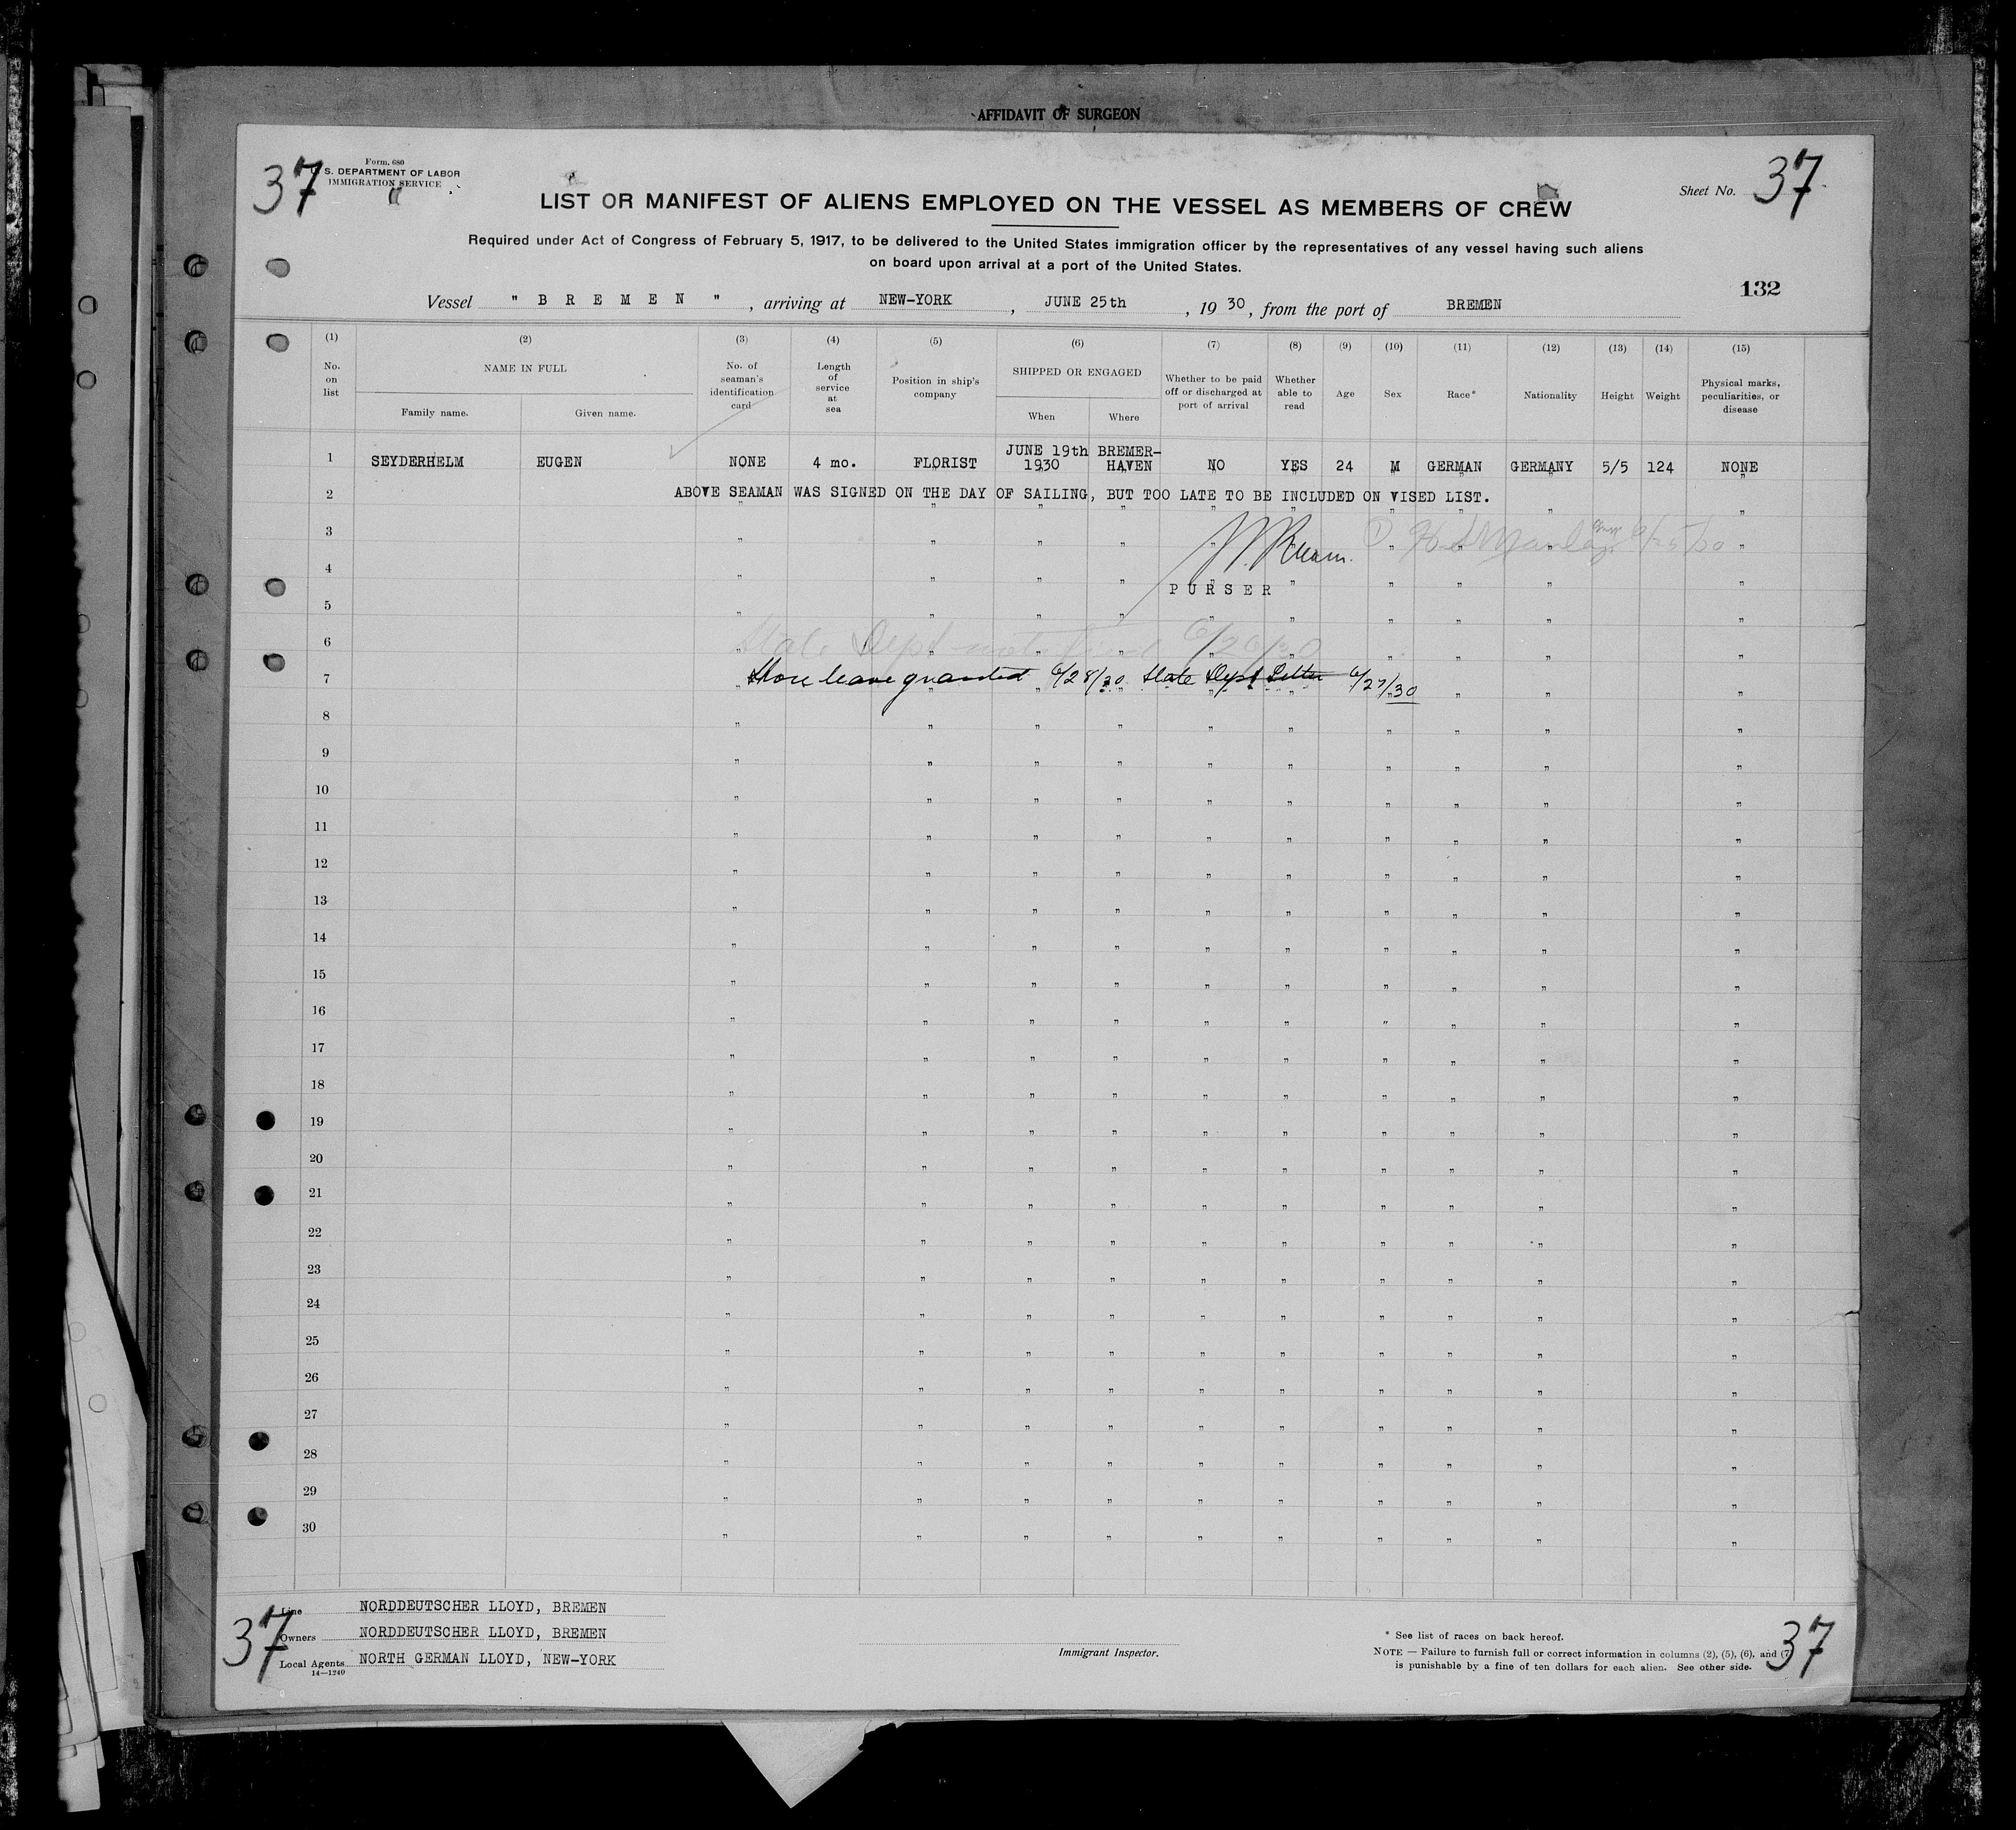 AFFIDAVIT OF SURGEON
37
Form. 680
S. DEPARTMENT OF LABOR
IMMIGRATION SERVICE
Sheet No. 37
LIST OR MANIFEST OF ALIENS EMPLOYED ON THE VESSEL AS MEMBERS OF CREW
Required under Act of Congress of February 5, 1917, to be delivered to the United States immigration officer by the representatives of any vessel having such aliens
on board upon arrival at a port of the United States.
132
Vessel " B R E M E N " , arriving at NEW-YORK , JUNE 25th , 19 30, from the port of BREMEN
(1) (2) (3) (4) (5) (6) (7) (8) (9) (10) (11) (12) (13) (14) (15)
No. on list
NAME IN FULL
Family name. Given name.
No. of seaman's identification card
Length of service at sea
Position in ship's company
SHIPPED OR ENGAGED
When Where
Whether to be paid off or discharged at port of arrival
Whether able to read
Age
Sex
Race*
Nationality
Height
Weight
Physical marks, peculiarities, or disease
1 SEYDERHELM EUGEN NONE 4 mo. FLORIST JUNE 19th 1930 BREMER-HAVEN NO YES 24 M GERMAN GERMANY 5/5 124 NONE
2 ABOVE SEAMAN WAS SIGNED ON THE DAY OF SAILING, BUT TOO LATE TO BE INCLUDED ON VISED LIST.
3 6/25/30
4 PURSER
5
6 State Dept notified 6/26/30
7 Shore leave granted 6/28/30. State Dept Letter 6/27/30
8
9
10
11
12
13
14
15
16
17
18
19
20
21
22
23
24
25
26
27
28
29
30
37
Line NORDDEUTSCHER LLOYD, BREMEN
Owners NORDDEUTSCHER LLOYD, BREMEN
Local Agents NORTH GERMAN LLOYD, NEW-YORK
14—1240
Immigrant Inspector.
* See list of races on back hereof.
NOTE — Failure to furnish full or correct information in columns (2), (5), (6), and (7
is punishable by a fine of ten dollars for each alien. See other side.
37